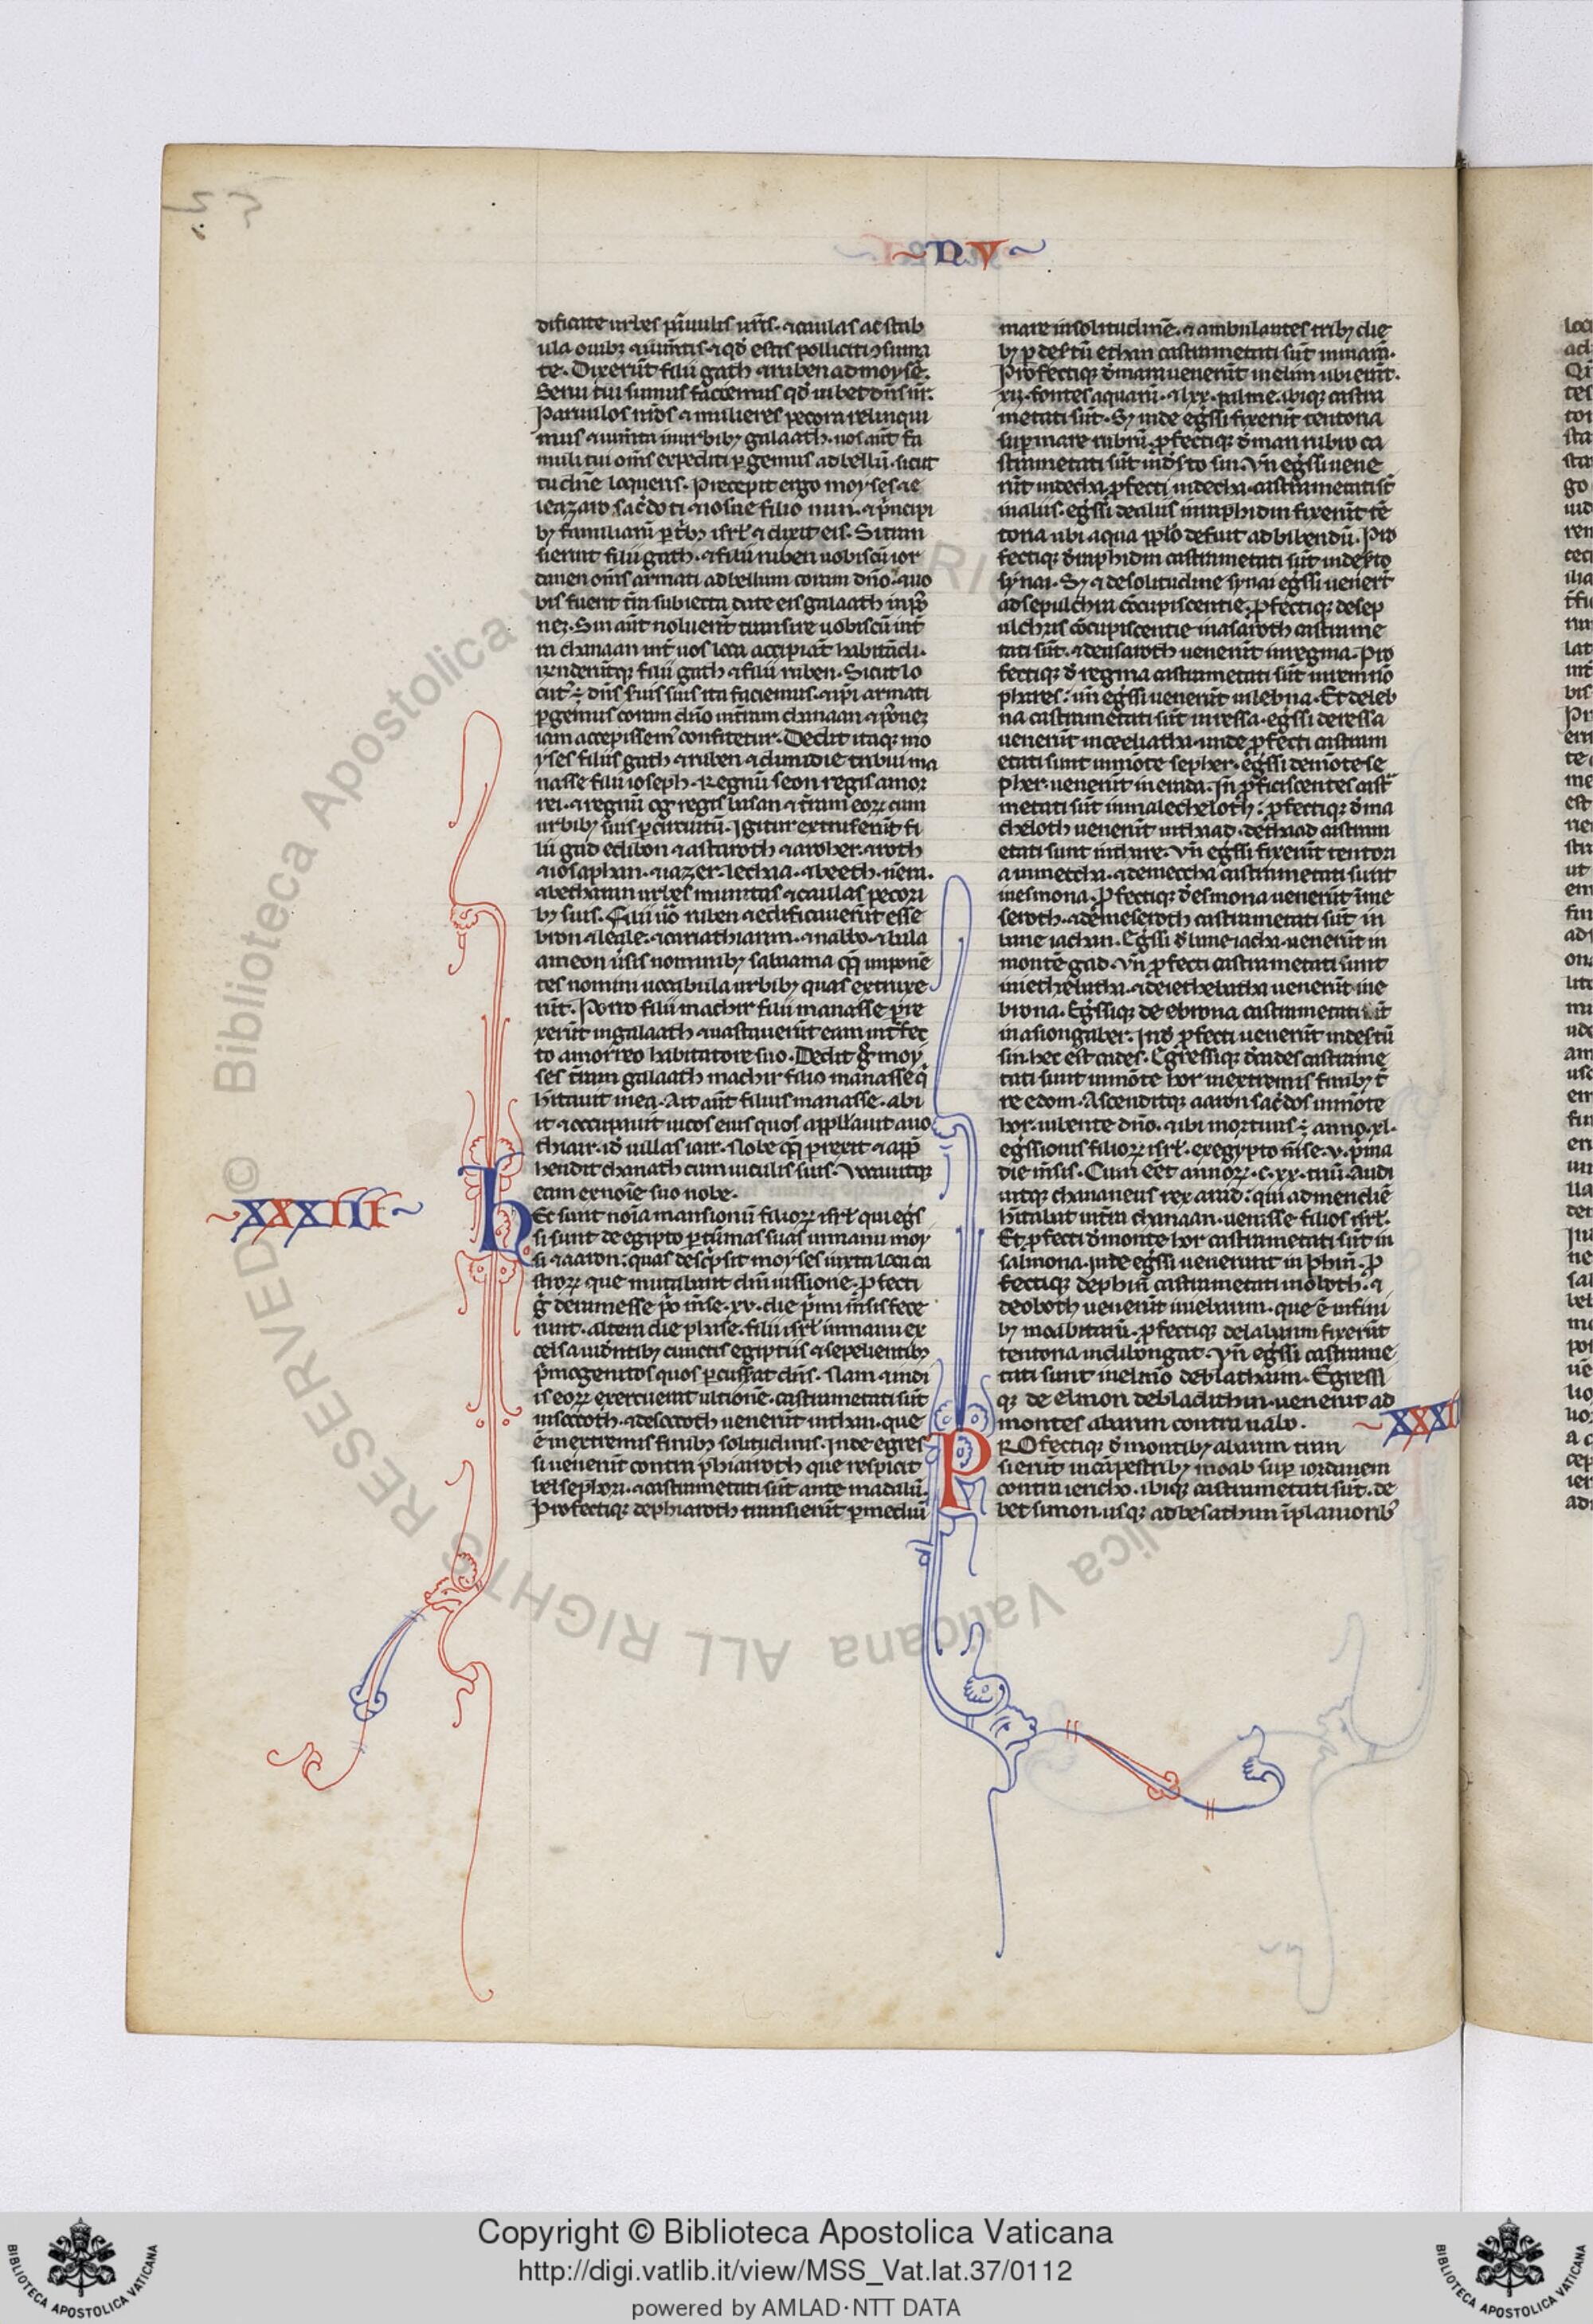 ~ N V ~
dificate urbes ꝑuulis ur̄is. ⁊ caulas ac stab
ula ouibꝫ ⁊ iumētis ⁊ qd̄ estis polliciti ꝯsuma
te. Dixerūt filii gath ⁊ ruben ad moysē.
Serui tui sumus faciemus qd̄ iubet dn̄s nr̄.
Paruulos nr̄os ⁊ mulieres pecora relinqui
mus ⁊ iumēta in urbibꝫ galaath. nos aūt fa
muli tui om̄s expediti ꝑgemus ad bellū. sicut
tu dn̄e loqueris. Precepit ergo moyses ele
leazaro sac̄doti ⁊ iosue filio nun. ⁊ p̄ncipi
bꝫ familiarū ꝑ t̄bꝫ isrl̄ ⁊ dixit eis. Si tran
sierint filii gath. ⁊ filii ruben uobiscū ior
danen om̄s armati ad bellum coram dn̄o. ⁊ uo
bis fuerit t̄ra subiecta date eis galaath in pos
nez. Sin aūt noluerīt transire uobiscū in t̄
ra chanaan int̄ uos loca accipiāt habitādi.
Rn̄derūtqꝫ filii gath ⁊ filii ruben. Sicut lo
cut᷒ ē dn̄s suis suis ita faciemus. ⁊ ip̄i armati
ꝑgemus coram dn̄o in t̄ram chanaan ⁊ posnez
iam accepissem᷒ confitetur. Dedit itaqꝫ mo
yses filiis gath ⁊ ruben ⁊ dimidie tribui ma
nasse filii ioseph. Regnū seon regis amor
rei. ⁊ regnū og regis basan ⁊ t̄ram eoꝝ cum
urbibꝫ suis ꝑ circuitū. Igitur extruxerūt fi
lii gad edibon ⁊ astaroth ⁊ aroher. ⁊ roth
⁊ iosaphan. ⁊ iazer. lecbaa. ⁊ beeth. nem.
⁊ betharan urbes munitas ⁊ caulas pecori
bꝫ suis. Filii uō ruben ⁊ edificauerūt esse
bron ⁊ leale. ⁊ cariathiarim. ⁊ nabo. ⁊ bala
ameon ūsis nominibꝫ sabaama qꝫ imponē
tes nomini uocabula urbibꝫ quas extruxe
rūt. Porro filii machir filii manasse ꝑre
xerūt in galaath ⁊ uastauerūt eam int̄fec
to amorreo habitatore suo. Dedit g̊ moy
ses t̄ram galaath machir filio manasse q̄
hītauit in ea. Air aūt filius manasse. abi
it ⁊ occupauit uicos eius quos appellauit auo
thiair. id̄ uillas iair. Nobe qꝫ ꝑrexit ⁊ app̄
hendit chanath cum uiculis suis. Vocauitqꝫ
eam ex noīe suo nobe.
~ XXXIII ~
Hec sunt noīa mansionū filioꝝ isrl̄ qui egs
si sunt de egipto ꝑ turmas suas in manu moy
si ⁊ aaron: quas desc̄psit moyses iuxta loca ca
stroꝝ que mutabant dn̄i iussione. ꝓfecti
g̊ de ramesse p̄o m̄se. xv. die p̄mi m̄sis fece
runt. altera die phase. filii isrl̄ in manu ex
celsa uidētibꝫ cunctis egiptiis ⁊ sepelientibꝫ
p̄mogenitos quos ꝑcusserat dn̄s. Nam ⁊ in di
is eoꝝ exercuerat ultionē. castrametati sūt
in soccoth. ⁊ de soccoth uenerūt in ethan. que
ē in extremis finibꝫ solitudinis. Inde egres
si uenerūt contra phiairoth que respicit
belsephon. ⁊ castrametati sūt ante madalū.
Profectiqꝫ de phiaroth transierūt ꝑ mediū
mare in solitudinē. ⁊ ambulantes tribꝫ die
bꝫ ꝑ desertū ethan castrametati sūt in mara.
Profectiqꝫ de mara uenerūt in elim ubi erāt.
xii. fontes aquarū. ⁊ lxx. palme. ibiqꝫ castra
metati sūt. Sꝫ inde egssi fixerūt tentoria
sup̄ mare rubrū. ꝓfectiqꝫ de mari rubro ca
strametati sūt in desto sin. Vn̄ egssi uene
rūt in decha. ꝓfecti in decha. castrametati sūt
in alus. egssi de alus in raphidin fixerūt tē
toria ubi aqua pplō defuit ad bibendū. Pro
fectiqꝫ de raphidin castrametati sūt in desto
synai. Sꝫ ⁊ de solitudine synai egssi uenerūt
ad sepulchra ꝯcupiscentie. ꝓfectiqꝫ de sep
ulchris ꝯcupiscentie in asaroth castrame
tati sūt. ⁊ de asaroth uenerūt in regma. Pro
fectiqꝫ de regma castrametati sūt in remno
phares: un̄ egssi uenerūt in lebna. Et de leb
na castrametati sūt in ressa. egssi de ressa
uenerūt in ceeliatha. unde ꝓfecti castram
etati sunt in mōte sepher. egssi de mōte se
pher. uenerūt in erada. Inde ꝓficiscentes cast̄
metati sūt in maleceloth: ꝓfectiqꝫ de ma
cheloth uenerūt in thaad. de thaad castram
etati sunt in thare. Vn̄ egssi fixerūt tentori
a in metcha. ⁊ de metcha castrametati sunt
in esmona. Profectiqꝫ de esmona uenerūt ī me
seroth. ⁊ de meseroth castrametati sūt in
bane iachan. Egssi de bane iacha. uenerūt in
montē gad. Vn̄ ꝓfecti castrametati sunt
in iethebatha. ⁊ de iethebatha uenerūt in e
brona. Egssiqꝫ de ebrona castrametati sūt
in asiongaber. Inde ꝓfecti uenerūt in desertū
sin. hec est cades. Egressiqꝫ de cades castrame
tati sunt in mōte hor in extremis finibꝫ t̄
re edom. Ascenditqꝫ aaron sac̄dos in mōte
hor. iubente dn̄o. ⁊ ibi mortuus ē anno. xl.
egssionis filioꝝ isrl̄. ex egypto m̄se. v. p̄ma
die m̄sis. Cum eēt annoꝝ. c. xx. triū. Audi
uitqꝫ chananeus rex arad: qui ad meridiē
hītabat in t̄ra chanaan. uenisse filios isrl̄.
Et ꝓfecti de monte hor castrametati sūt in
salmona. Inde egssi uenerunt in phinū. ꝓ
fectiqꝫ de phinū castrametati in oboth. ⁊
de oboth uenerūt in iebarim. que ē in fini
bꝫ moabitarū. ꝓfectiqꝫ de iabarim fixerūt
tentoria in dibongat. Vn̄ egssi castrame
tati sunt in elmo deblathaim. Egressi
qꝫ de elmon debladithin. uenerūt ad
montes abarim contra nabo.
~ XXXI
PROfectiqꝫ de montibꝫ abarim tran
sierūt in cāpestribꝫ moab sup̄ iordanem
contra iericho. ibiqꝫ castrametati sūt. de
bet simon. usqꝫ ad belsathim ī planioribꝫ
© Biblioteca Apostolica Vaticana ALL RIGHTS RESERVED
Copyright © Biblioteca Apostolica Vaticana
http://digi.vatlib.it/view/MSS_Vat.lat.37/0112
powered by AMLAD·NTT DATA
BIBLIOTECA APOSTOLICA VATICANA
BIBLIOTECA APOSTOLICA VATICANA